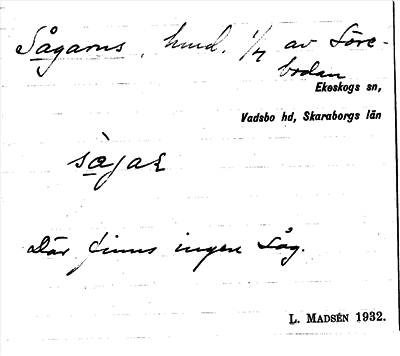 Sågarns, hmd. 1/4 av Töre-
bodan
Ekeskogs sn,
Vadsbo hd, Skaraborgs län
sàgaʀ
Där finns ingen såg.
L. MADSÉN 1932.